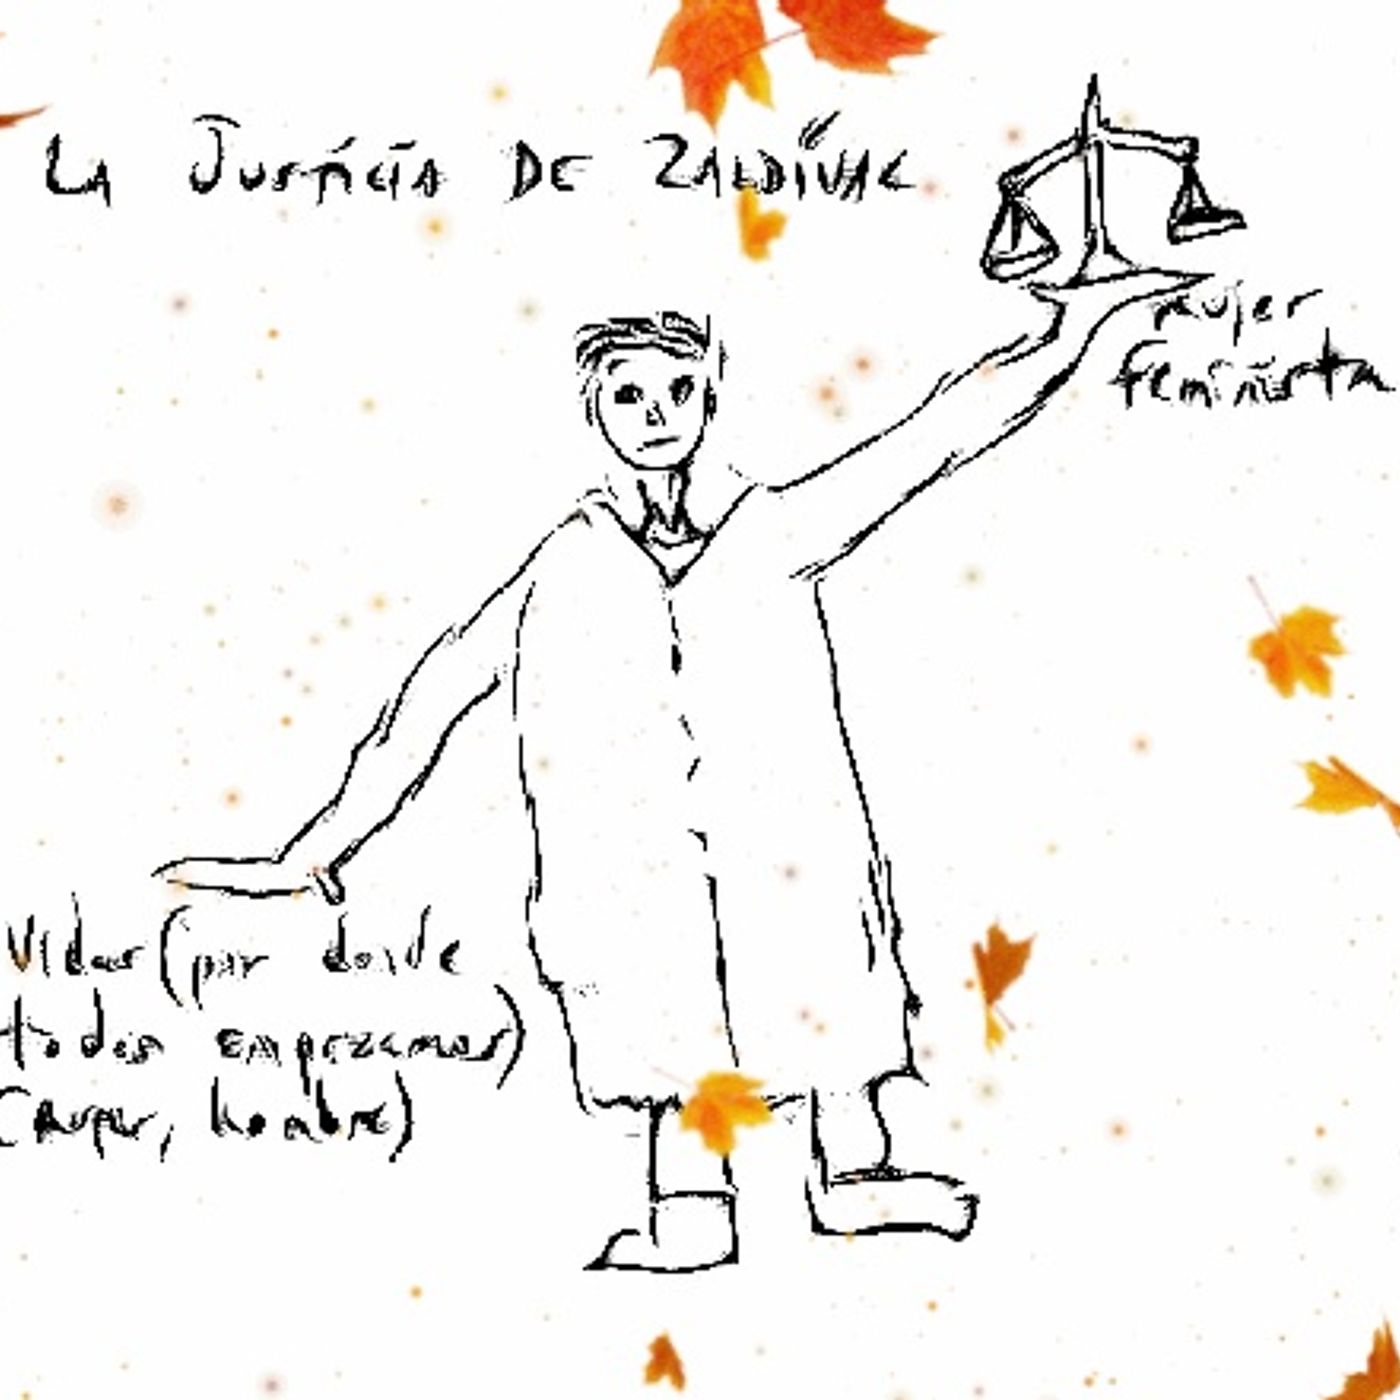 LA JUSTICIA DE ZALDÍVAR
mujer
feminista
Vidas (por donde
todos empezamos)
(mujer, hombre)